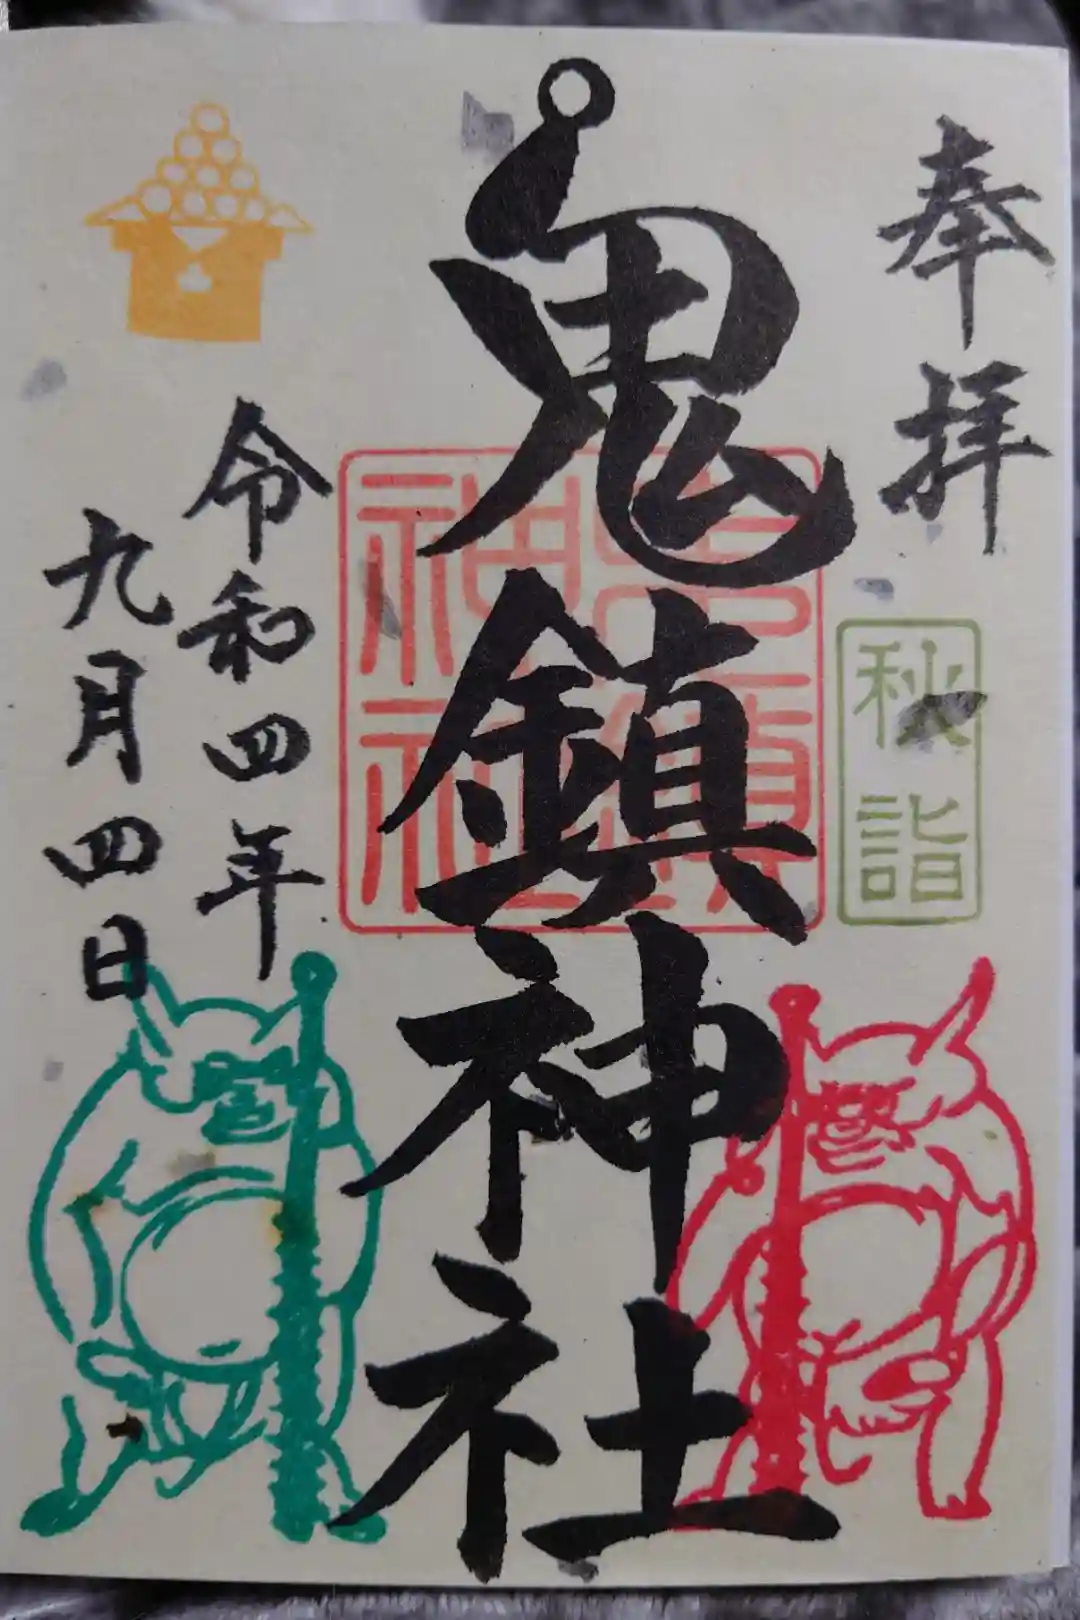 奉拝
秋詣
鬼鎮神社
令和四年
九月四日